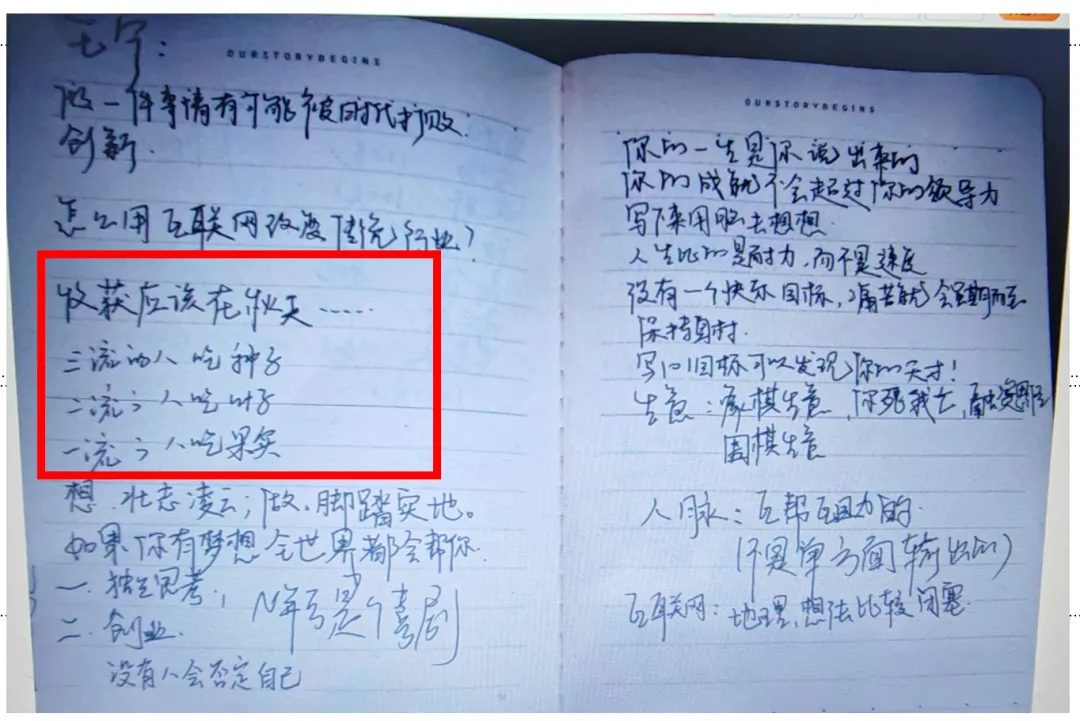 OURSTORYBEGINS
做一件事请有可能被时代打败.
创新.
怎么用互联网改变传统行业?
收获应该在秋天……
三流的人吃种子
二流之人吃叶子
一流之人吃果实
想.壮志凌云;做.脚踏实地。
如果你有梦想全世界都会帮你.
一.独立思考,
N年后是个喜剧
二.创业.
没有人会否定自己
OURSTORYBEGINS
你的一生是你说出来的
你的成就不会超过你的领导力
写下来用脑去想想.
人生比的是耐力,而不是速度
没有一个快乐目标,痛苦就会如期而至
保持身材.
写101目标可以发现你的天才!
生意:象棋生意,你死我亡,
围棋生意
人脉:互帮互助力的.
(不是单方面输出的)
互联网:地理、想法比较闭塞.